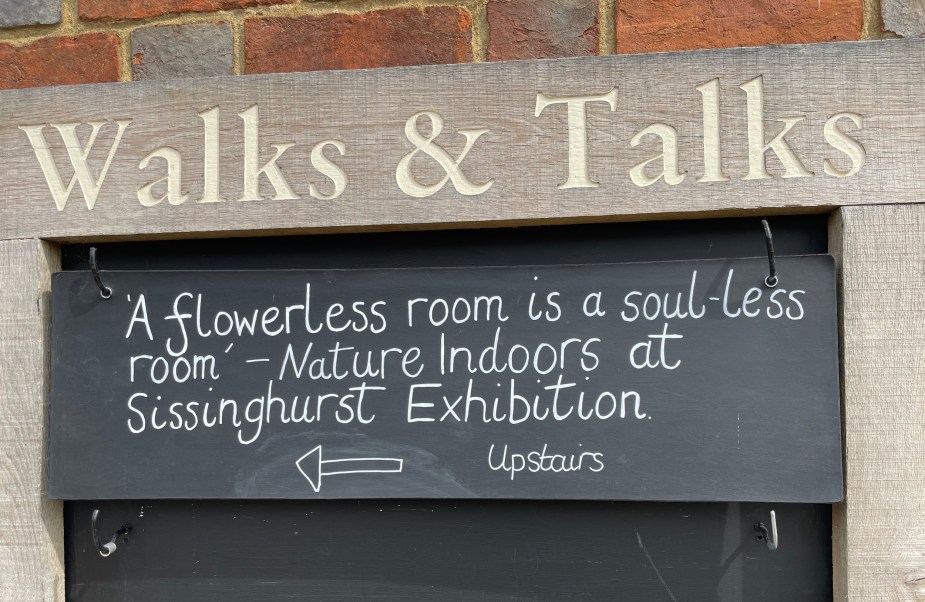 Walks & Talks
'A flowerless room is a soul-less
room' – Nature Indoors at
Sissinghurst Exhibition.
Upstairs